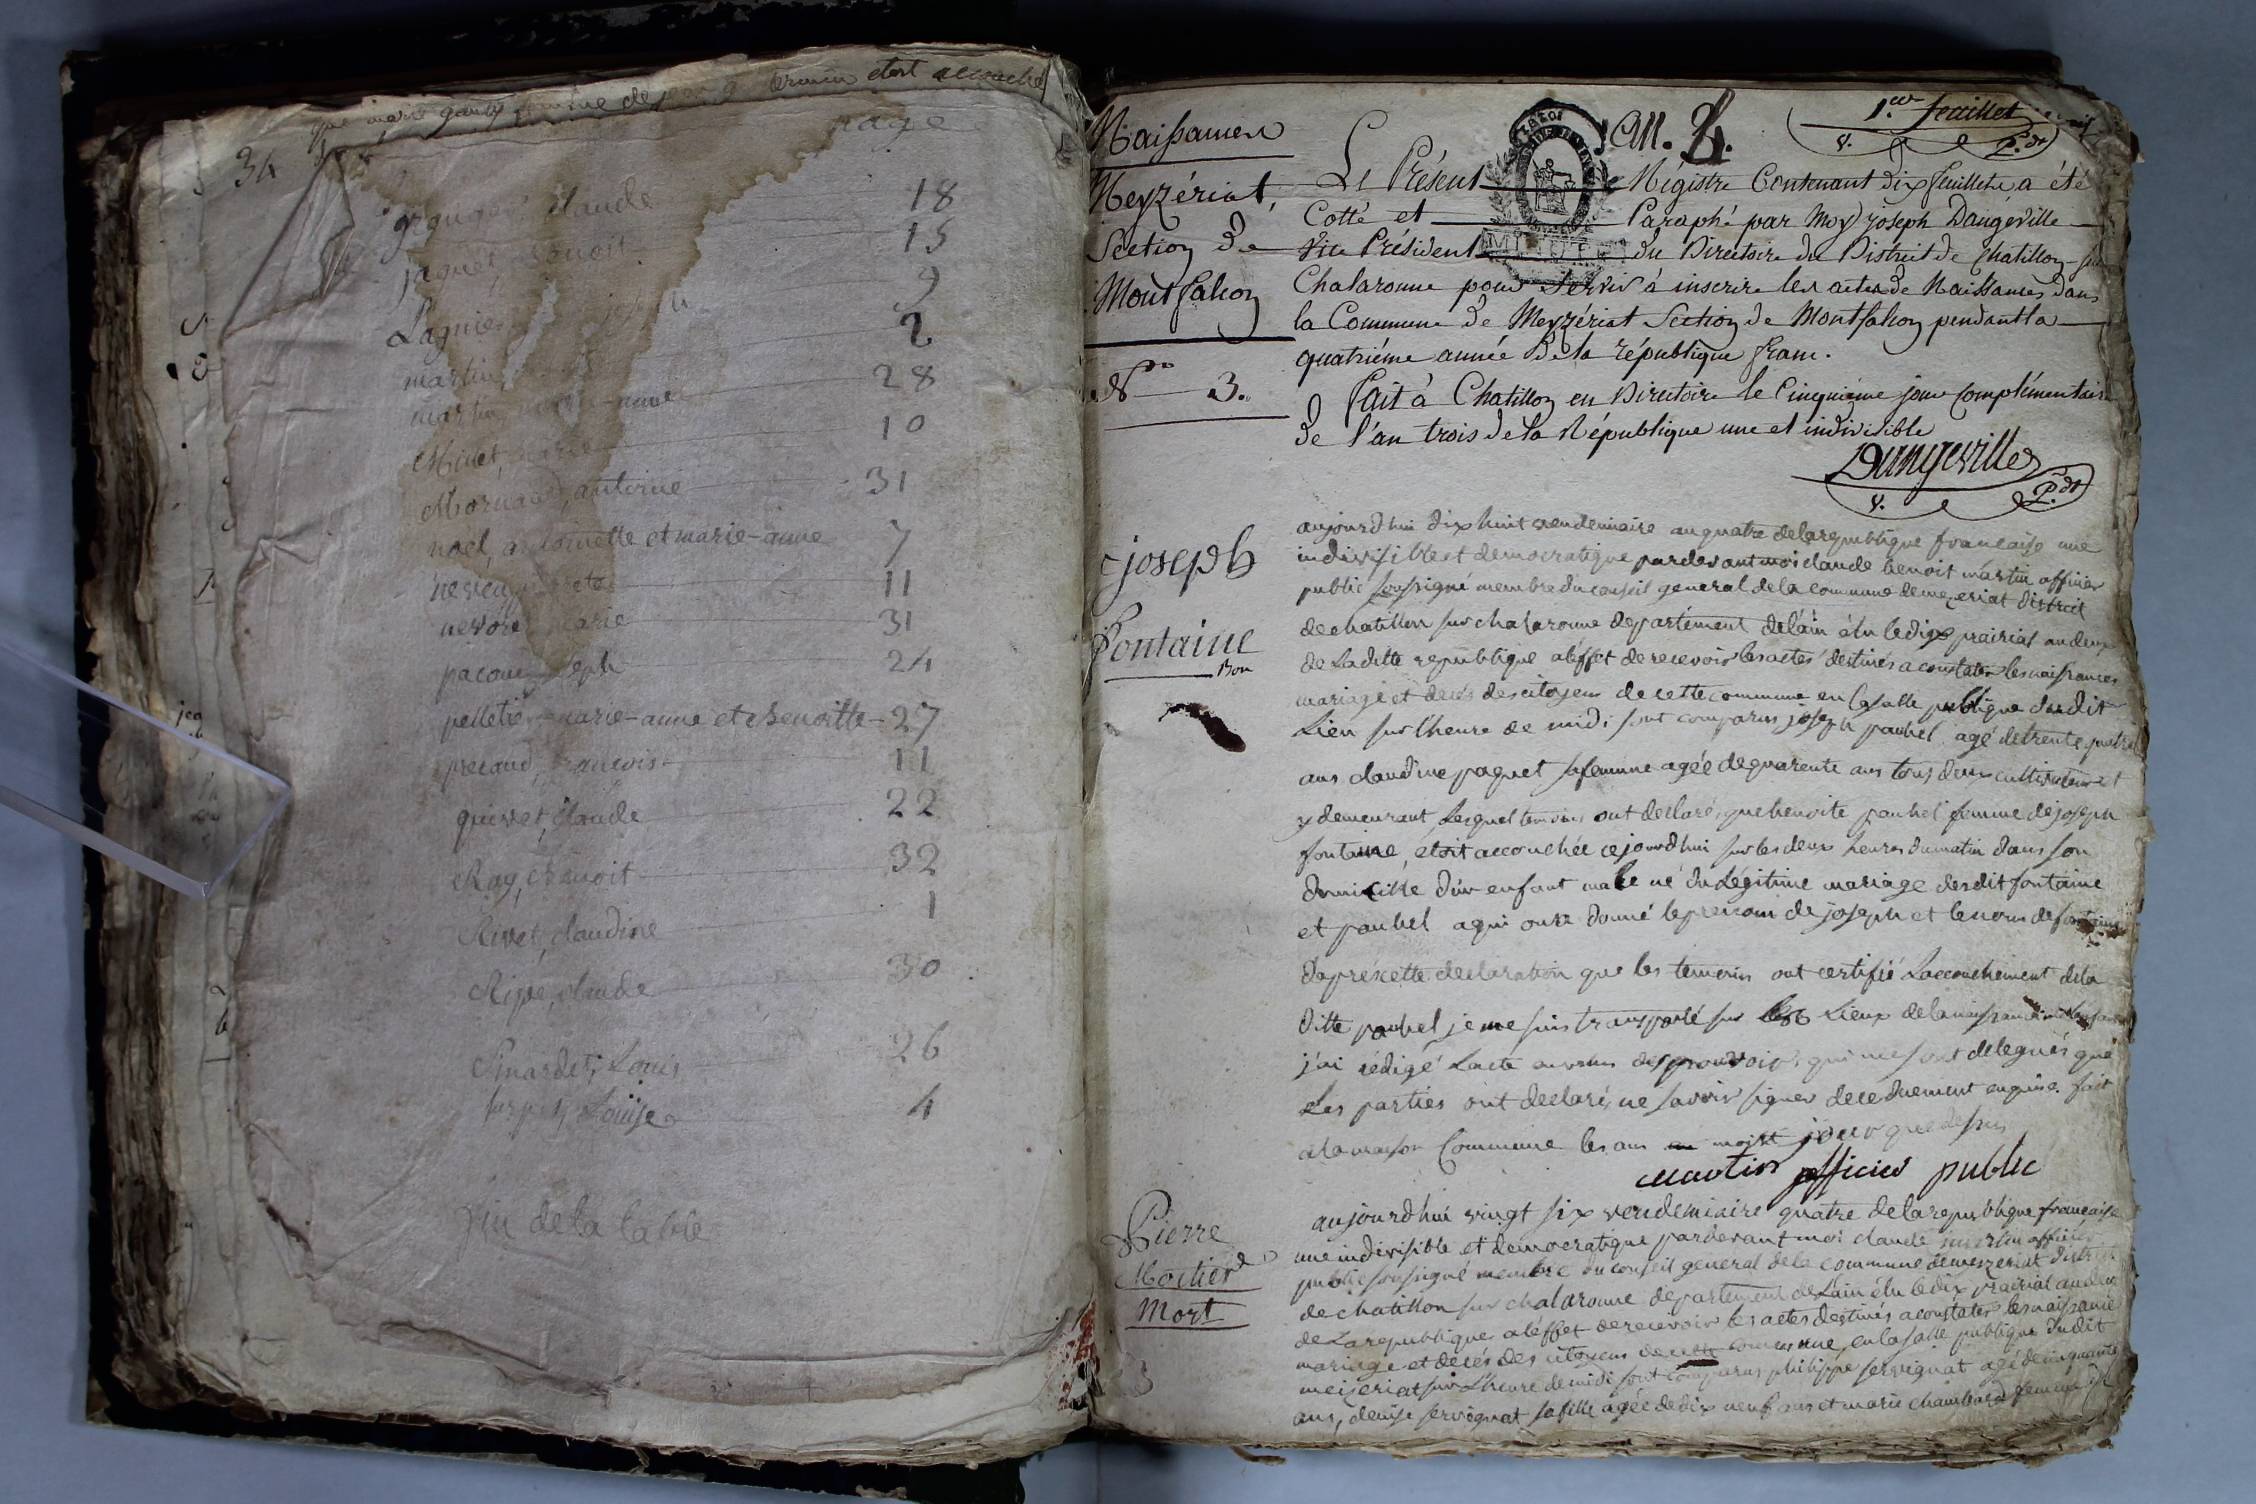 que marie
femme de
etoit accouchée
34
page
granger claude 18
jaquet, benoit 15
Lagnier 9
martin 2
martin, marie-anne 28
Minet, marie 10
Mornand, antoine 31
noel, antoinette et marie-anne 7
11
marie 31
pacoue, joseph 24
pelletier marie-anne et Benoitte 27
precaud, francois 11
quivet, claude 22
Ray, Benoit 32
Rivet, claudine 1
Ripe, claude 30
Louis 26
Louise 4
fin de la table
Naissances
Meyzériat,
Section de
Montfalcon
No. 3.
an. 4.
1.er feuillet
V. P.dt
Le Présent Régistre Contenant dix feuillets a été
Cotté et Paraphé par Moy joseph Dangeville
Vice Président du Directoire du District de Chatillon sur
MINUTE
Chalaronne pour Servir à inscrire les actes de Naissances dans
la Commune de Meyzériat Section de Montfalcon pendant la
quatriéme année de la république franc.
Fait à Chatillon en Directoire le Cinquiéme jour Complémentaire
de l'an trois de la République une et indivisible
Dangeville
V. P.dt
joseph
Fontaine
Bon
aujourdhui dix huit vendemiaire an quatre de la republique francaise une
indivisible et democratique pardevant moi claude benoit martin officier
public soussigné membre du conseil general de la commune de mezeriat district
de chatillon sur chalaronne departement de lain élu le dix prairial an deux
de Laditte republique a leffet de recevoir les actes destinés a constater les naissances
mariage et decés des citoyens de cette commune en la salle publique dudit
Lieu sur lheure de midi sont comparus joseph pauhel agé de trente quatre
ans claudine paquet sa femme agée de quarente ans tous deux cultivateur et
y demeurant Lesquel temoins ont declaré, que benoite pauhel femme de joseph
fontaine, etoit accouchée cejourdhui sur les deux heures du matin dans son
domicille d'un enfant male né du Légitime mariage desdit fontaine
et pauhel a qui on donné le prenom de joseph et le nom de fontaine
daprés cette declaration que les temoins ont certifié Laccouchement de la
ditte pauhel je me suis transporté sur les Lieux de la naissance
j'ai rédigé Lacte en vertu des pouvoirs qui me sont delegués que
Les parties ont declaré, ne savoir signer de ce duement enquise. fait
a la maison Commune les ans mois et jour que dessus
martin officier public
Pierre
Moitier
Mort
aujourdhui vingt six vendemiaire quatre de la republique francaise
une indivisible et democratique pardevant moi claude martin officier
public soussigné membre du conseil general de la commune de mezeriat district
de chatillon sur chalaronne departement de Lain élu le dix prairial an deux
de La republique a leffet de recevoir les actes destinés a constater les naissance
mariage et décés des citoyens de cette commune, en la salle publique dudit
meizeriat sur Lheure de midi sont comparus philippe servignat agé de cinquante
ans, denise servignat sa fille agée de dix neuf ans et marie chambard femme de